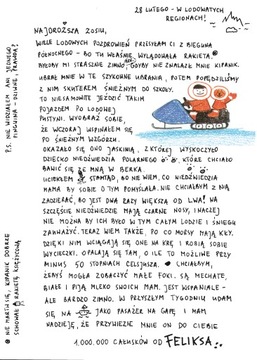 28 LUTEGO - W LODOWATYCH
REGIONACH!
NAJDROŻSZA ZOSIU,
WIELE LODOWYCH POZDROWIEŃ PRZESYŁAM CI Z BIEGUNA
PÓŁNOCNEGO - BO TU WŁAŚNIE WYLĄDOWAŁA RAKIETA.
BYŁOBY MI STRASZNIE ZIMNO, GDYBY NIE ZNALAZŁ MNIE KIPANIK.
UBRAŁ MNIE W TE SZYKOWNE UBRANIA, POTEM POMEDZILIŚMY
Z NIM SKUTEREM ŚNIEŻNYM DO SZKOŁY.
TO NIESAMOWITE JEŹDZIĆ TAKIM
POJAZDEM PO LODOWEJ
PUSTYNI. WYOBRAŹ SOBIE,
ŻE WCZORAJ WSPINAŁEM SIĘ
PO ŚNIEŻNYM WZGÓRZU.
OKAZAŁO SIĘ ONO JASKINIĄ, Z KTÓREJ WYSKOCZYŁO
DZIECKO NIEDŹWIEDZIA POLARNEGO, KTÓRE CHCIAŁO
BAWIĆ SIĘ ZE MNĄ W BERKA.
UCIEKŁEM STAMTĄD, BO NIE WIEM, CO NIEDŹWIEDZIA
MAMA BY SOBIE O TYM POMYŚLAŁA. NIE CHCIAŁBYM Z NIĄ
ZADZIERAĆ, BO JEST DWA RAZY WIĘKSZA OD LWA! NA
SZCZĘŚCIE NIEDŹWIEDZIE MAJĄ CZARNE NOSY, INACZEJ
NIE MOŻNA BY ICH BYŁO W TYM CAŁYM LODZIE I ŚNIEGU
ZAUWAŻYĆ. TERAZ WIEM TAKŻE, PO CO MORSY MAJĄ KŁY.
DZIĘKI NIM WCIĄGAJĄ SIĘ ONE NA KRĘ I ROBIĄ SOBIE
WYCIECZKI. OPALAJĄ SIĘ TAM, O ILE TO MOŻLIWE PRZY
MINUS 50 STOPNIACH CELSJUSZA. CHCIAŁBYM,
ŻEBYŚ MOGŁA ZOBACZYĆ MAŁE FOKI. SĄ MECHATE,
BIAŁE I PIJĄ MLEKO SWOICH MAM. JEST WSPANIALE -
ALE BARDZO ZIMNO. W PRZYSZŁYM TYGODNIU UDAM
SIĘ NA JAKO PASAŻER NA GAPĘ I MAM
NADZIEJĘ, ŻE PRZYWIEZIE MNIE ON DO CIEBIE
1.000.000 CAŁUSKÓW OD FELIKSA.
P.S. NIE WIDZIAŁEM ANI JEDNEGO
PINGWINA - DZIWNE, PRAWDA?
NIE MARTW SIĘ, KIPANIK DOBRZE
SCHOWAŁ RAKIETĘ KSIĘŻYCOWĄ